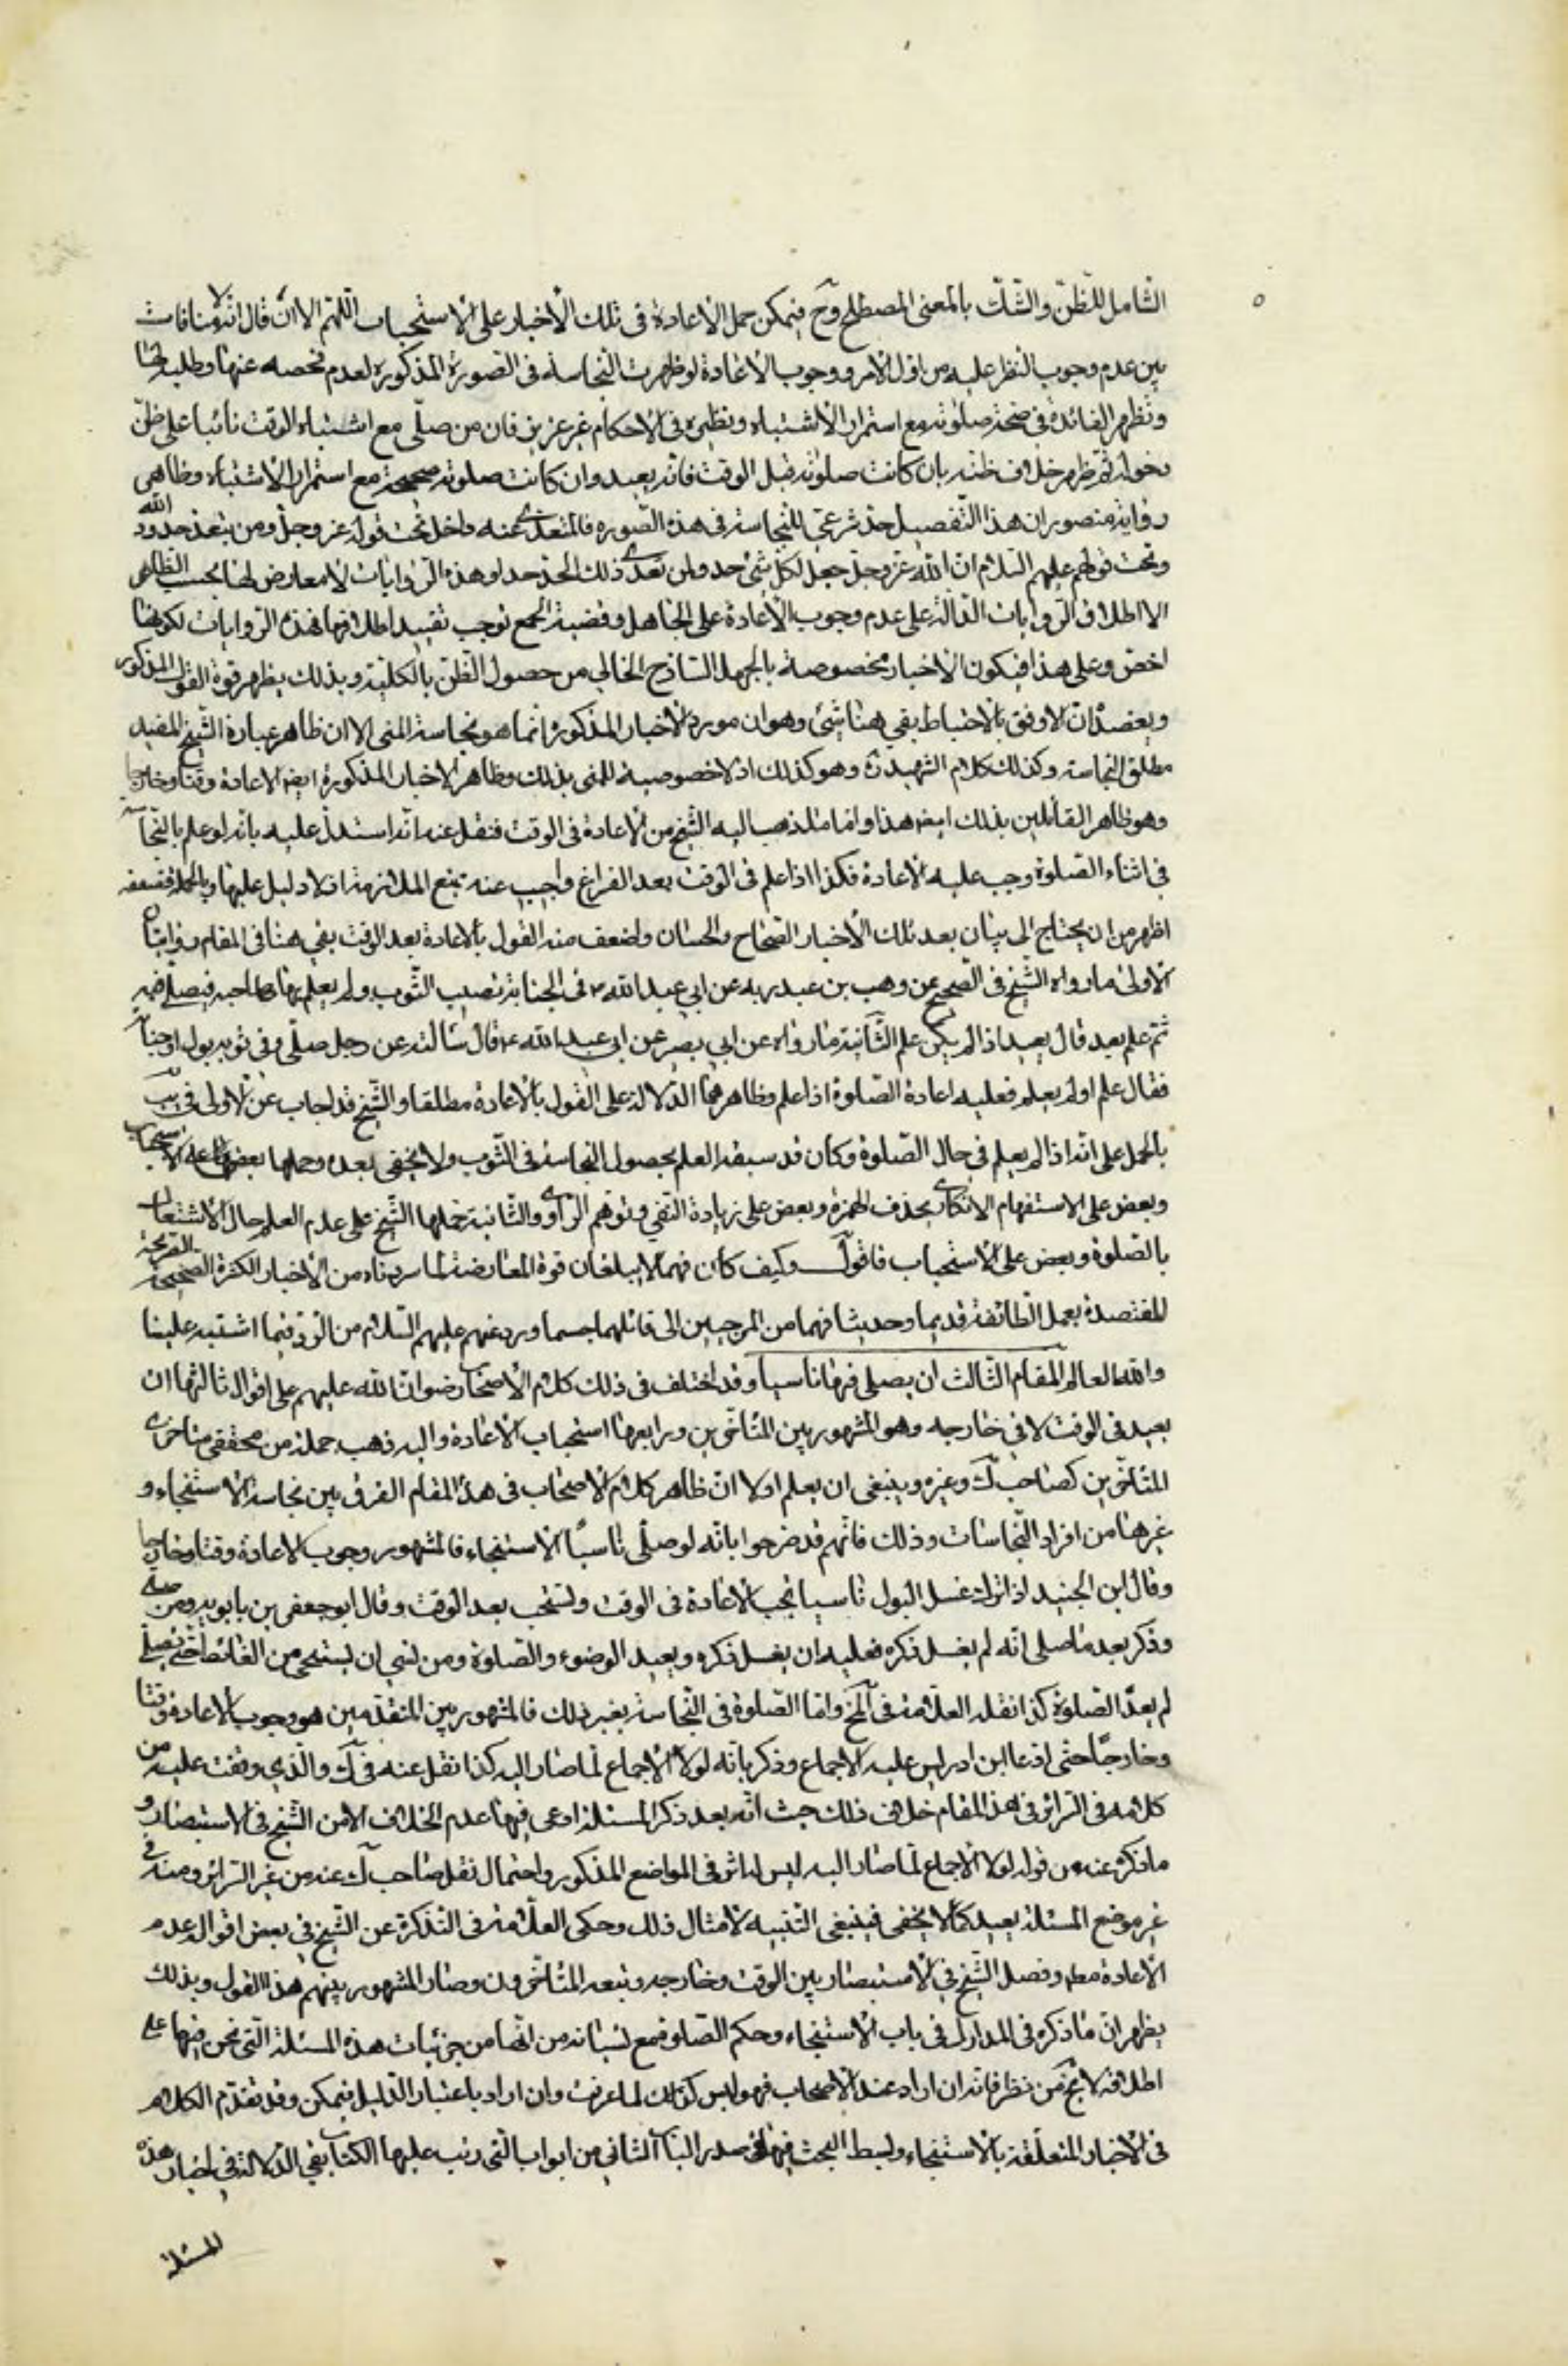 الشامل للظن والشك بالمعنى المصطلح وح فيمكن حمل الاعادة فى تلك الأخبار على الاستحباب اللهم الا ان قال انه لا منافات
بين عدم وجوب النظر عليه من اول الأمر ووجوب الاعادة لو ظهرت النجاسة فى الصورة المذكورة لعدم فحصه عنها وطلبه لها
وتظهر الفائدة فى صحة صلوته مع استمرار الاشتباه ونظيره فى الاحكام غير عزيز فان من صلى مع اشتباه الوقت بانيا على ظن
دخوله ثم ظهر خلاف ظنه بان كانت صلوته قبل الوقت فانه يعيد وان كانت صلوته صحيحة مع استمرار الاشتباه وظاهر
رواية منصور ان هذا التفصيل حد شرعى للنجاسة فى هذه الصورة فالمتعدى عنه داخل تحت قوله عز وجل ومن يتعد حدود الله
وتحت قولهم عليهم السلام ان الله عز وجل جعل لكل شئ حد ولمن تعدى ذلك الحد حد او هذه الروايات لا معارض لها بحسب الظاهر
الا اطلاق الروايات الدالة على عدم وجوب الاعادة على الجاهل وقضية الجمع توجب تقييد اطلاقها بهذه الروايات لكونها
اخص وعلى هذا فيكون الاخبار مخصوصة بالجهل الساذج الخالي من حصول الظن بالكلية وبذلك يظهر قوة القول المذكور
ويعضده ان الاوفق بالاحتياط بقي هنا شئ وهو ان مورد الاخبار المذكورة انما هو نجاسة المنى الا ان ظاهر عبارة الشيخ المفيد
مطلق النجاسة وكذلك كلام الشهيد ره وهو كذلك اذ لا خصوصية للمنى بذلك وظاهر الاخبار المذكورة ايضا الاعادة وقتا وخارجا
وهو ظاهر القائلين بذلك ايضا هذا واما ما ذهب اليه الشيخ من الاعادة فى الوقت فنقل عنه انه استدل عليه بانه لو علم بالنجاسة
فى اثناء الصلوة وجب عليه الاعادة فكذا اذا علم فى الوقت بعد الفراغ واجيب عنه بمنع الملازمة اذ لا دليل عليها وبالجملة فضعفه
اظهر من ان يحتاج الى بيان بعد تلك الأخبار الصحاح والحسان واضعف منه القول بالاعادة بعد الوقت بقي هنا فى المقام روايتان
الاولى ما رواه الشيخ فى الصحيح عن وهب بن عبد ربه عن ابي عبد الله ع فى الجنابة تصيب الثوب ولم يعلم بها صاحبه فيصلى فيه
ثم علم بعد قال يعيد اذا لم يكن علم الثانية ما رواه عن ابي بصير عن ابي عبد الله ع قال سألته عن رجل صلى وفى ثوبه بول او جنابة
فقال علم او لم يعلم فعليه اعادة الصلوة اذا علم وظاهرهما الدلالة على القول بالاعادة مطلقا والشيخ قد اجاب عن الاولى فى يب
بالحمل على انه اذا لم يعلم فى حال الصلوة وكان قد سبقه العلم بحصول النجاسة فى الثوب ولا يخفى بعده وحملها بعضها على الاستحباب
وبعض على الاستفهام الانكارى بحذف الهمزة وبعض على زيادة النفي وتوهم الراوى والثانية حملها الشيخ على عدم العلم حال الاشتغال
بالصلوة وبعض على الاستحباب فاقول وكيف كان فهما لا يبلغان قوة المعارضة لما سردناه من الأخبار الكثيرة الصحيحة الصريحة
المعتضدة بعمل الطائفة قديما وحديثا فهما من المرجيين الى قائلهما حسما ورد عنهم عليهم السلام من الرد فيما اشتبه علينا
والله العالم المقام الثالث ان يصلى فيها ناسيا وقد اختلف فى ذلك كلام الأصحاب رضوان الله عليهم على اقوال ثالثها ان
يعيد فى الوقت لا فى خارجه وهو المشهور بين المتأخرين ورابعها استحباب الاعادة واليه ذهب جملة من محققى متأخرى
المتأخرين كصاحب ك وغيره وينبغى ان يعلم اولا ان ظاهر كلام الاصحاب فى هذا المقام الفرق بين نجاسة الاستنجاء و
غيرها من افراد النجاسات وذلك فانهم قد صرحوا بانه لو صلى ناسيا الاستنجاء فالمشهور وجوب الاعادة وقتا وخارجا
وقال ابن الجنيد اذا ترك غسل البول ناسيا يجب الاعادة فى الوقت وتستحب بعد الوقت وقال ابو جعفر بن بابويه ومن صلى
وذكر بعد ما صلى انه لم يغسل ذكره فعليه ان يغسل ذكره ويعيد الوضوء والصلوة ومن نسي ان يستنجي من الغائط حتى يصلى
لم يعد الصلوة كذا نقله العلامة فى المخ واما الصلوة فى النجاسة بغير ذلك فالمشهور بين المتقدمين هو وجوب الاعادة وقتا
وخارجا حتى ادعا ابن ادريس عليه الاجماع وذكر بانه لولا الاجماع لما صار اليه كذا نقل عنه فى ك والذى وقفت عليه من
كلامه فى السرائر فى هذا المقام خلاف ذلك حيث انه بعد ذكر المسئلة ادعى فيها عدم الخلاف الا من الشيخ فى الاستبصار و
ما ذكره عنه من قوله لولا الاجماع لما صار اليه ليس له اثر فى المواضع المذكور واحتمال نقل صاحب ك عنه من غير السرائر ومنه فى
غير موضع المسئلة بعيد كما لا يخفى فينبغى التنبيه لامثال ذلك وحكى العلامة فى التذكرة عن الشيخ فى بعض اقواله عدم
الاعادة مط وفصل الشيخ فى الاستبصار بين الوقت وخارجه وتبعه المتأخرون وصار المشهور بينهم هذا القول وبذلك
يظهر ان ما ذكره فى المدارك فى باب الاستنجاء وحكم الصلوة مع نسيانه من انها من جزئيات هذه المسئلة التى نحن فيها على
اطلاقه لا يخ من نظر فانه ان اراد عند الاصحاب فهو ليس كذلك لما عرفت وان اراد باعتبار الدليل فيمكن وقد تقدم الكلام
فى الاخبار المتعلقة بالاستنجاء وبسط البحث فيها فى صدر الباب الثاني من ابواب التى رتب عليها الكتاب بقي الدلالة فى اخبار هذه
المسئلة